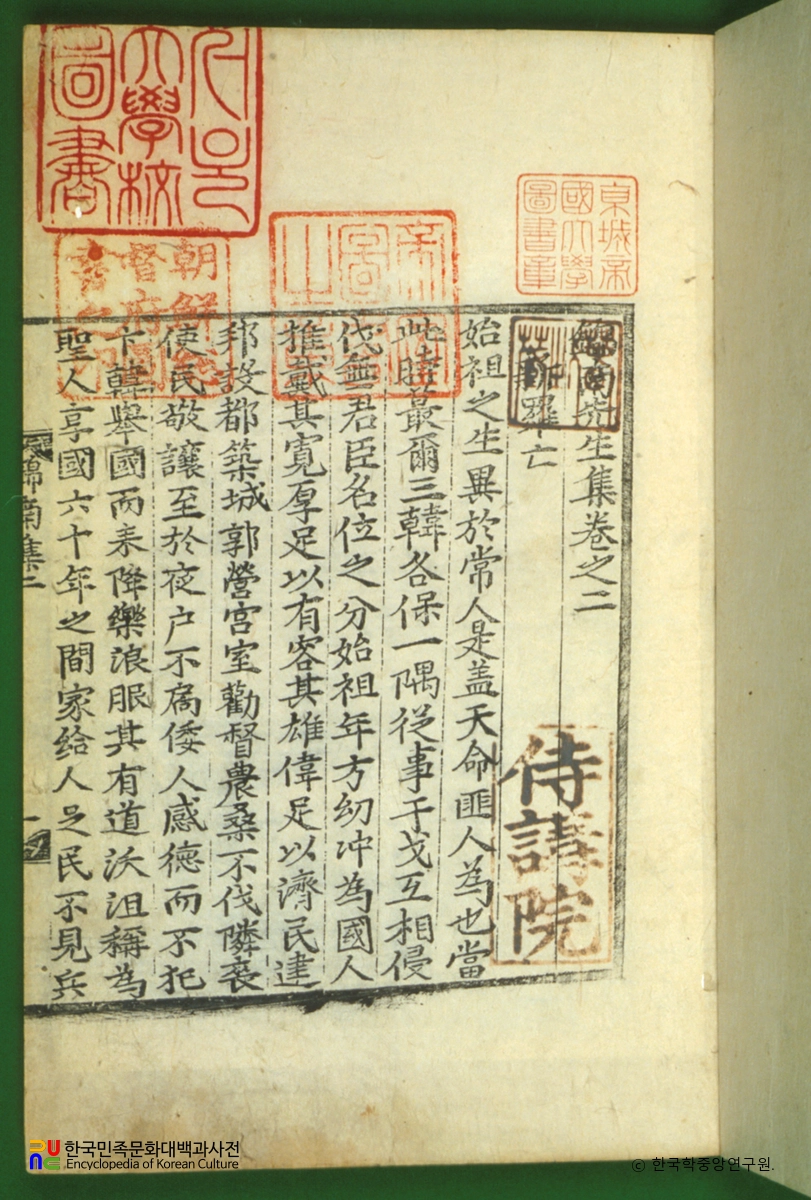 서울大學校圖書
京城帝國大學圖書章
帝室圖書之章
朝鮮總督府圖書之印
錦南先生集卷之二
新羅亡
侍講院
始祖之生異於常人是盖天命匪人為也當
此時蕞爾三韓各保一隅從事干戈互相侵
伐無君臣名位之分始祖年方幼冲為國人
推戴其寬厚足以有容其雄偉足以濟民建
邦設都築城郭營宮室勸督農桑不伐隣喪
使民敬讓至於夜户不扃倭人感德而不犯
卞韓舉國而来降樂浪服其有道沃沮稱為
聖人享國六十年之間家給人足民不見兵
錦南集二
一
한국민족문화대백과사전
Encyclopedia of Korean Culture
© 한국학중앙연구원.